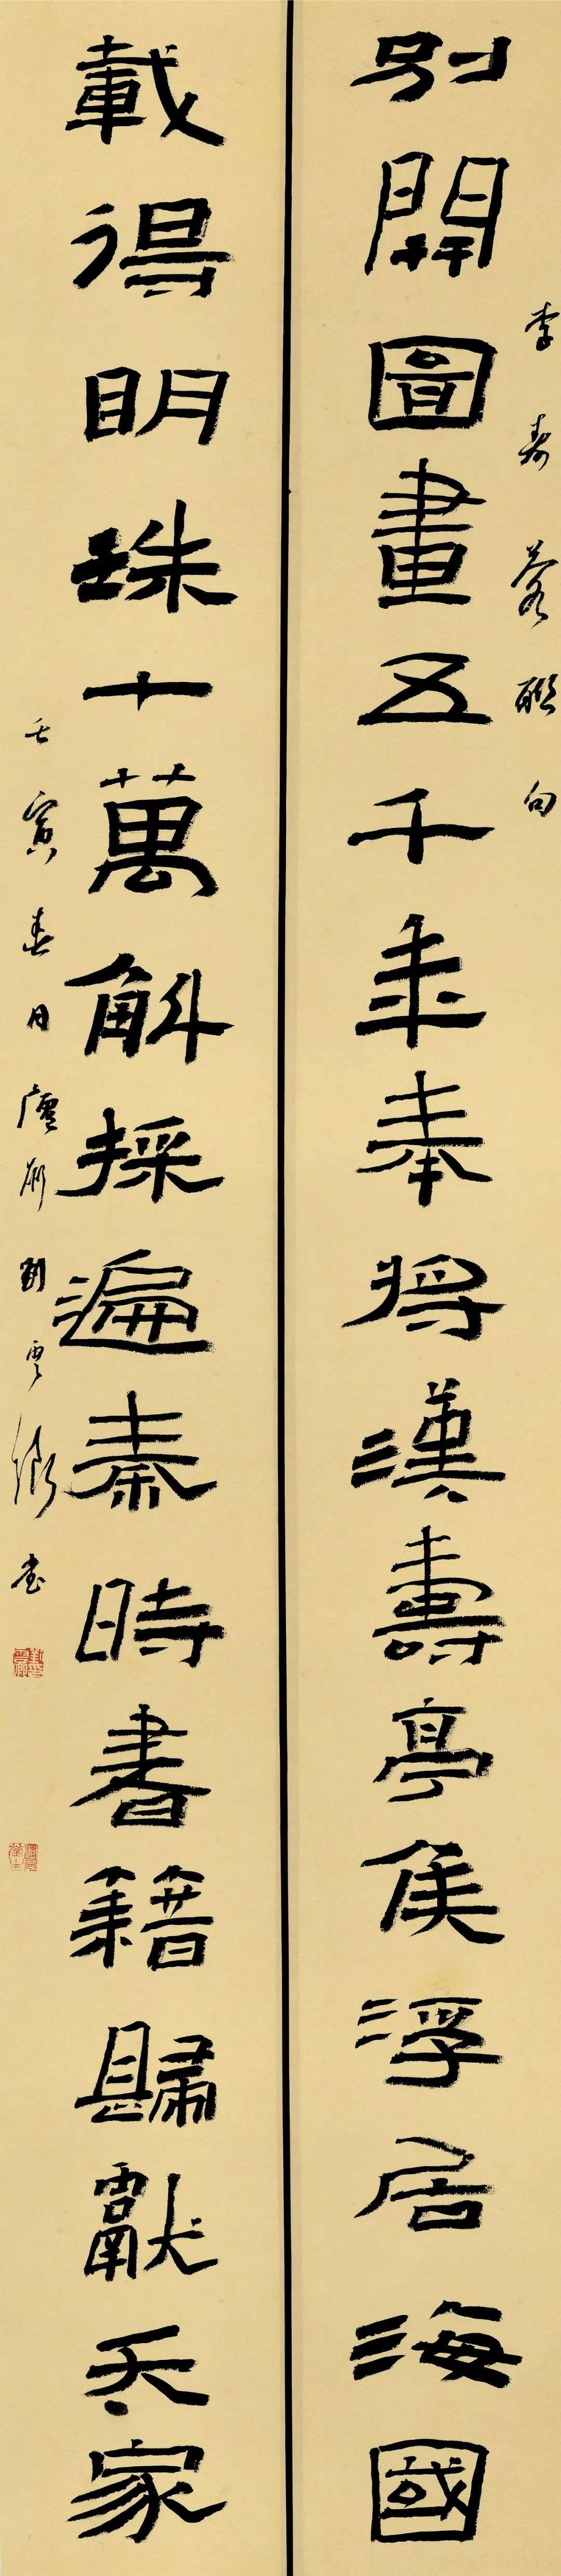 李壽蓉聯句
別開圖畫五千年奉將漢壽亭侯浮居海國
載得明珠十萬斛採遍秦時書籍歸獻天家
壬寅春月廬 劉雲 書